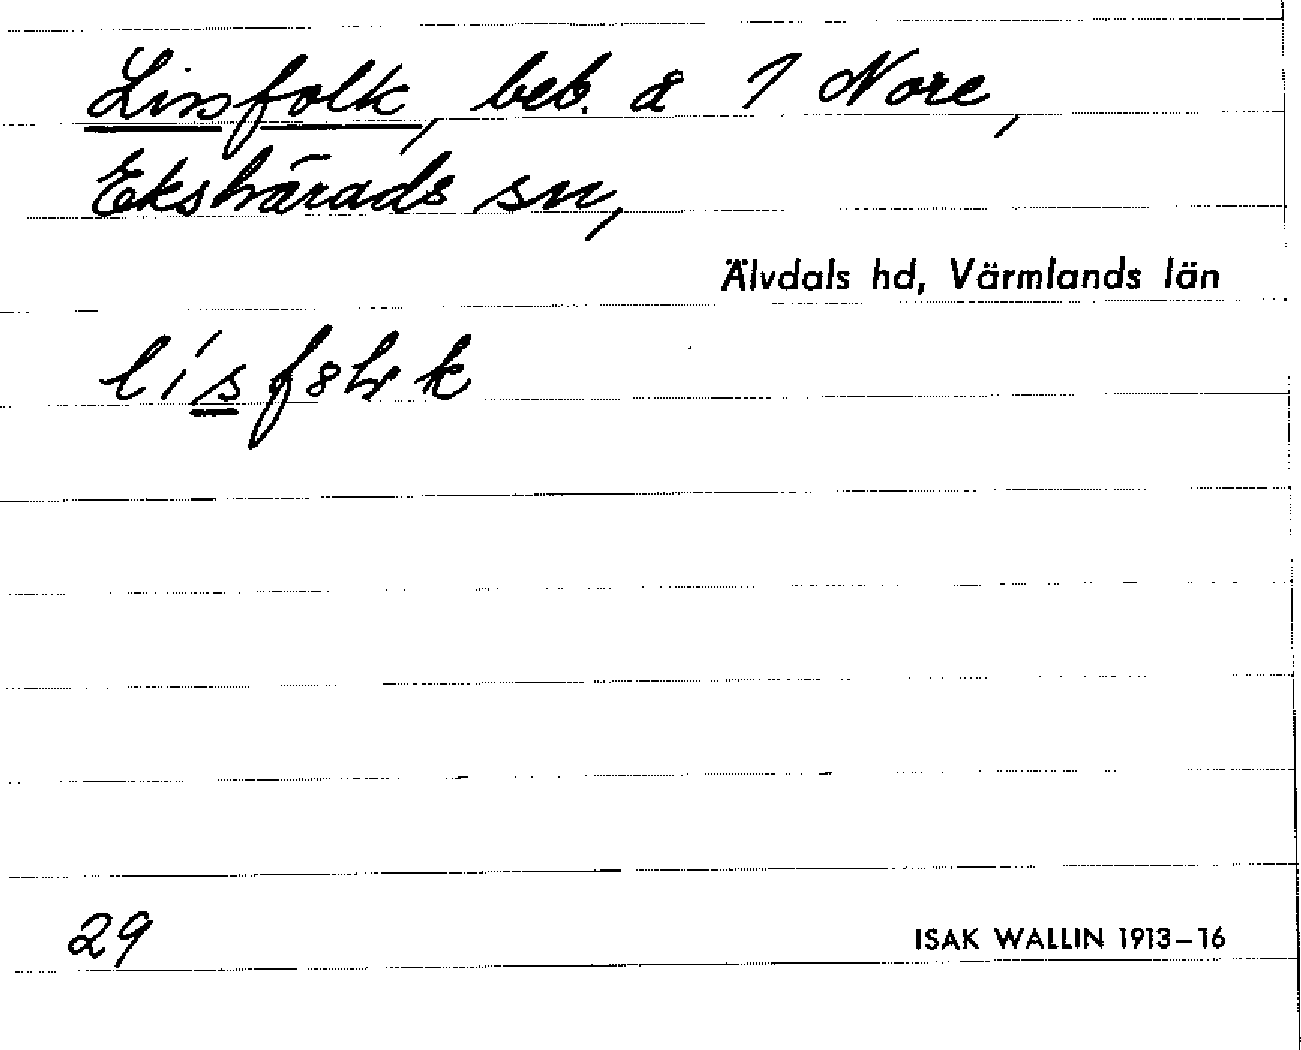 Lissfolk, beb. å 1 Nore,
Ekshärads sn,
Älvdals hd, Värmlands län
29
ISAK WALLIN 1913-16